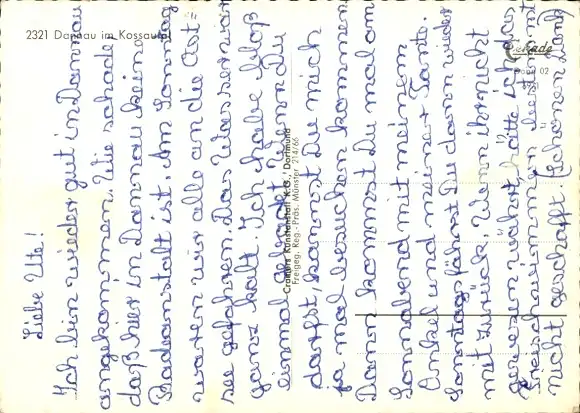 2321 Dannau im Kossautal
Cekade
02
Cramers Kunstanstalt K.G., Dortmund
Freigeg. Reg.-Präs. Münster 214/66
Liebe Ute!
Ich bin wieder gut in Dannau
angekommen. Wie schade
daß hier in Dannau keine
Badeanstalt ist. Am Sonntag
waren wir alle an die Ost-
see gefahren. Das Wasser war
ganz kalt. Ich habe bloß
einmal gebadet. Wenn Du
darfst, kannst Du mich
ja mal besuchen kommen.
Dann kommst Du mal am
Sonnabend mit meinem
Onkel und meiner Tante.
Sonntags fährst Du dann wieder
mit zurück. Wenn ihr nicht
gewesen wärst, hätte ich das
Freischwimmen bestimmt
nicht geschafft. (Schönen Dank)